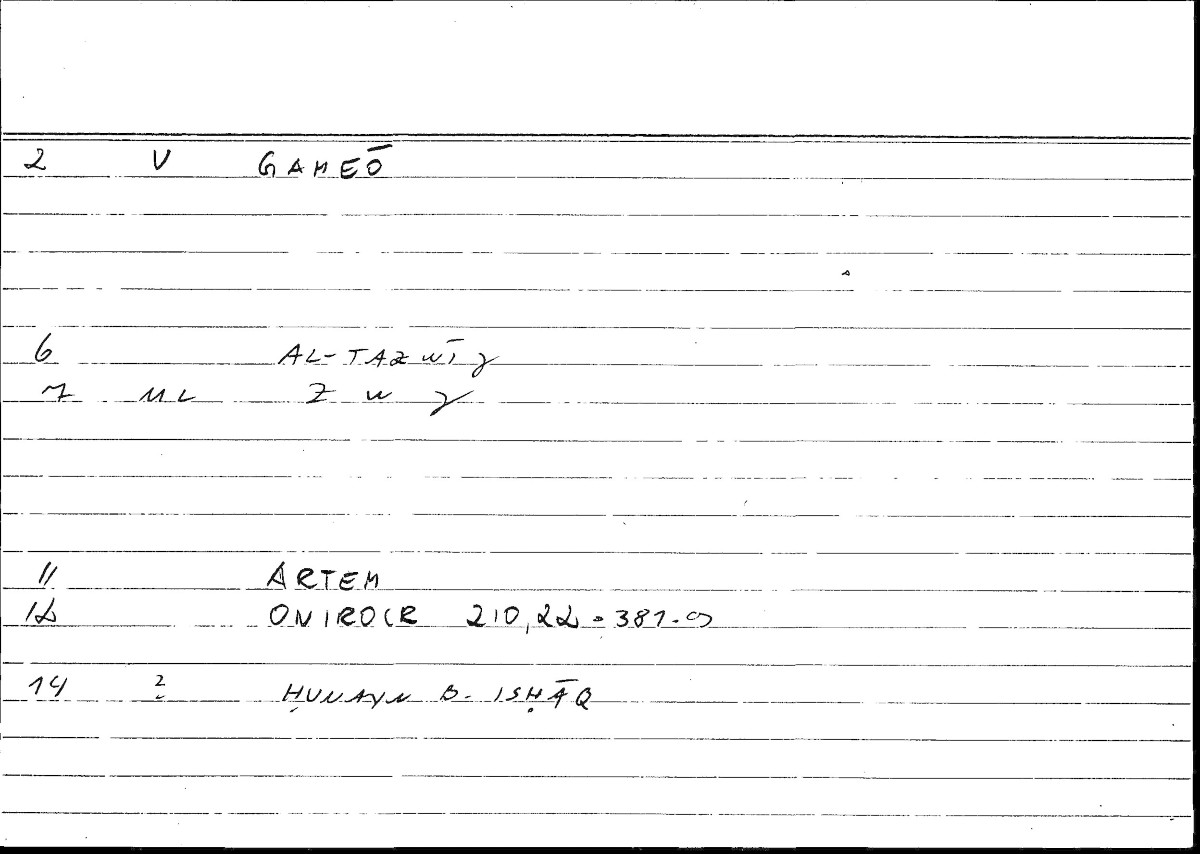 2 V GAMEŌ
6 AL-TAZWĪǧ
7 ML Z W ǧ
11 ARTEM
12 ONIROCR 210,22 = 381.9
14 2 ḤUNAYN B. ISḤĀQ